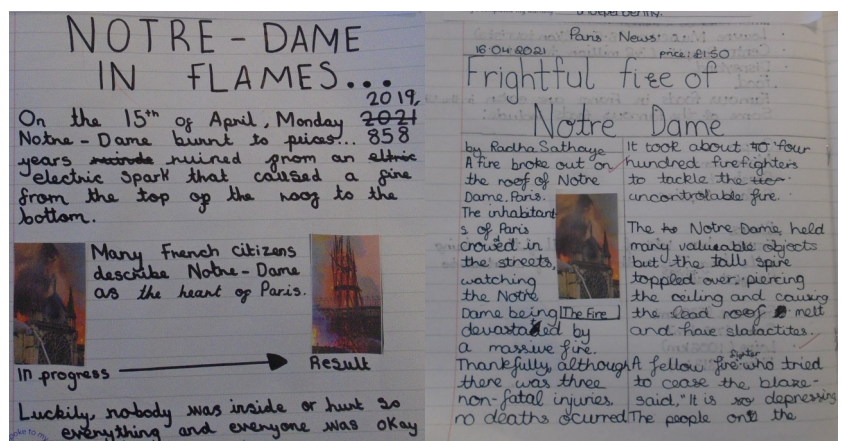 NOTRE-DAME
IN FLAMES...
2019,
On the 15th of April, Monday 2021
Notre-Dame burnt to pices... 858
years ruined from an eltric
electric spark that caused a fire
from the top of the roof to the
bottom.
Many French citizens
describe Notre-Dame
as the heart of Paris.
In progress
Result
Luckily, nobody was inside or hurt so
everything and everyone was okay
Paris News
16.04.2021 price: £1.50
Frightful fire of
Notre Dame
by Radha Sathaye
A fire broke out on
the roof of Notre
Dame, Paris.
The inhabitant
s of Paris
crowed in
the streets,
watching
the Notre
Dame being
devastated by
a massive fire.
Thankfully, although
there was three
non-fatal injuries
no deaths ocurred.
The Fire
It took about to four
hundred firefighters
to tackle the
uncontrolable fire.
The Notre Dame, held
many valueable objects
but the tall spire
toppled over, piercing
the ceiling and causing
the lead roof melt
and have stalactites.
A fellow fire fighter who tried
to cease the blaze-
said, "It is so depressing
The people on the